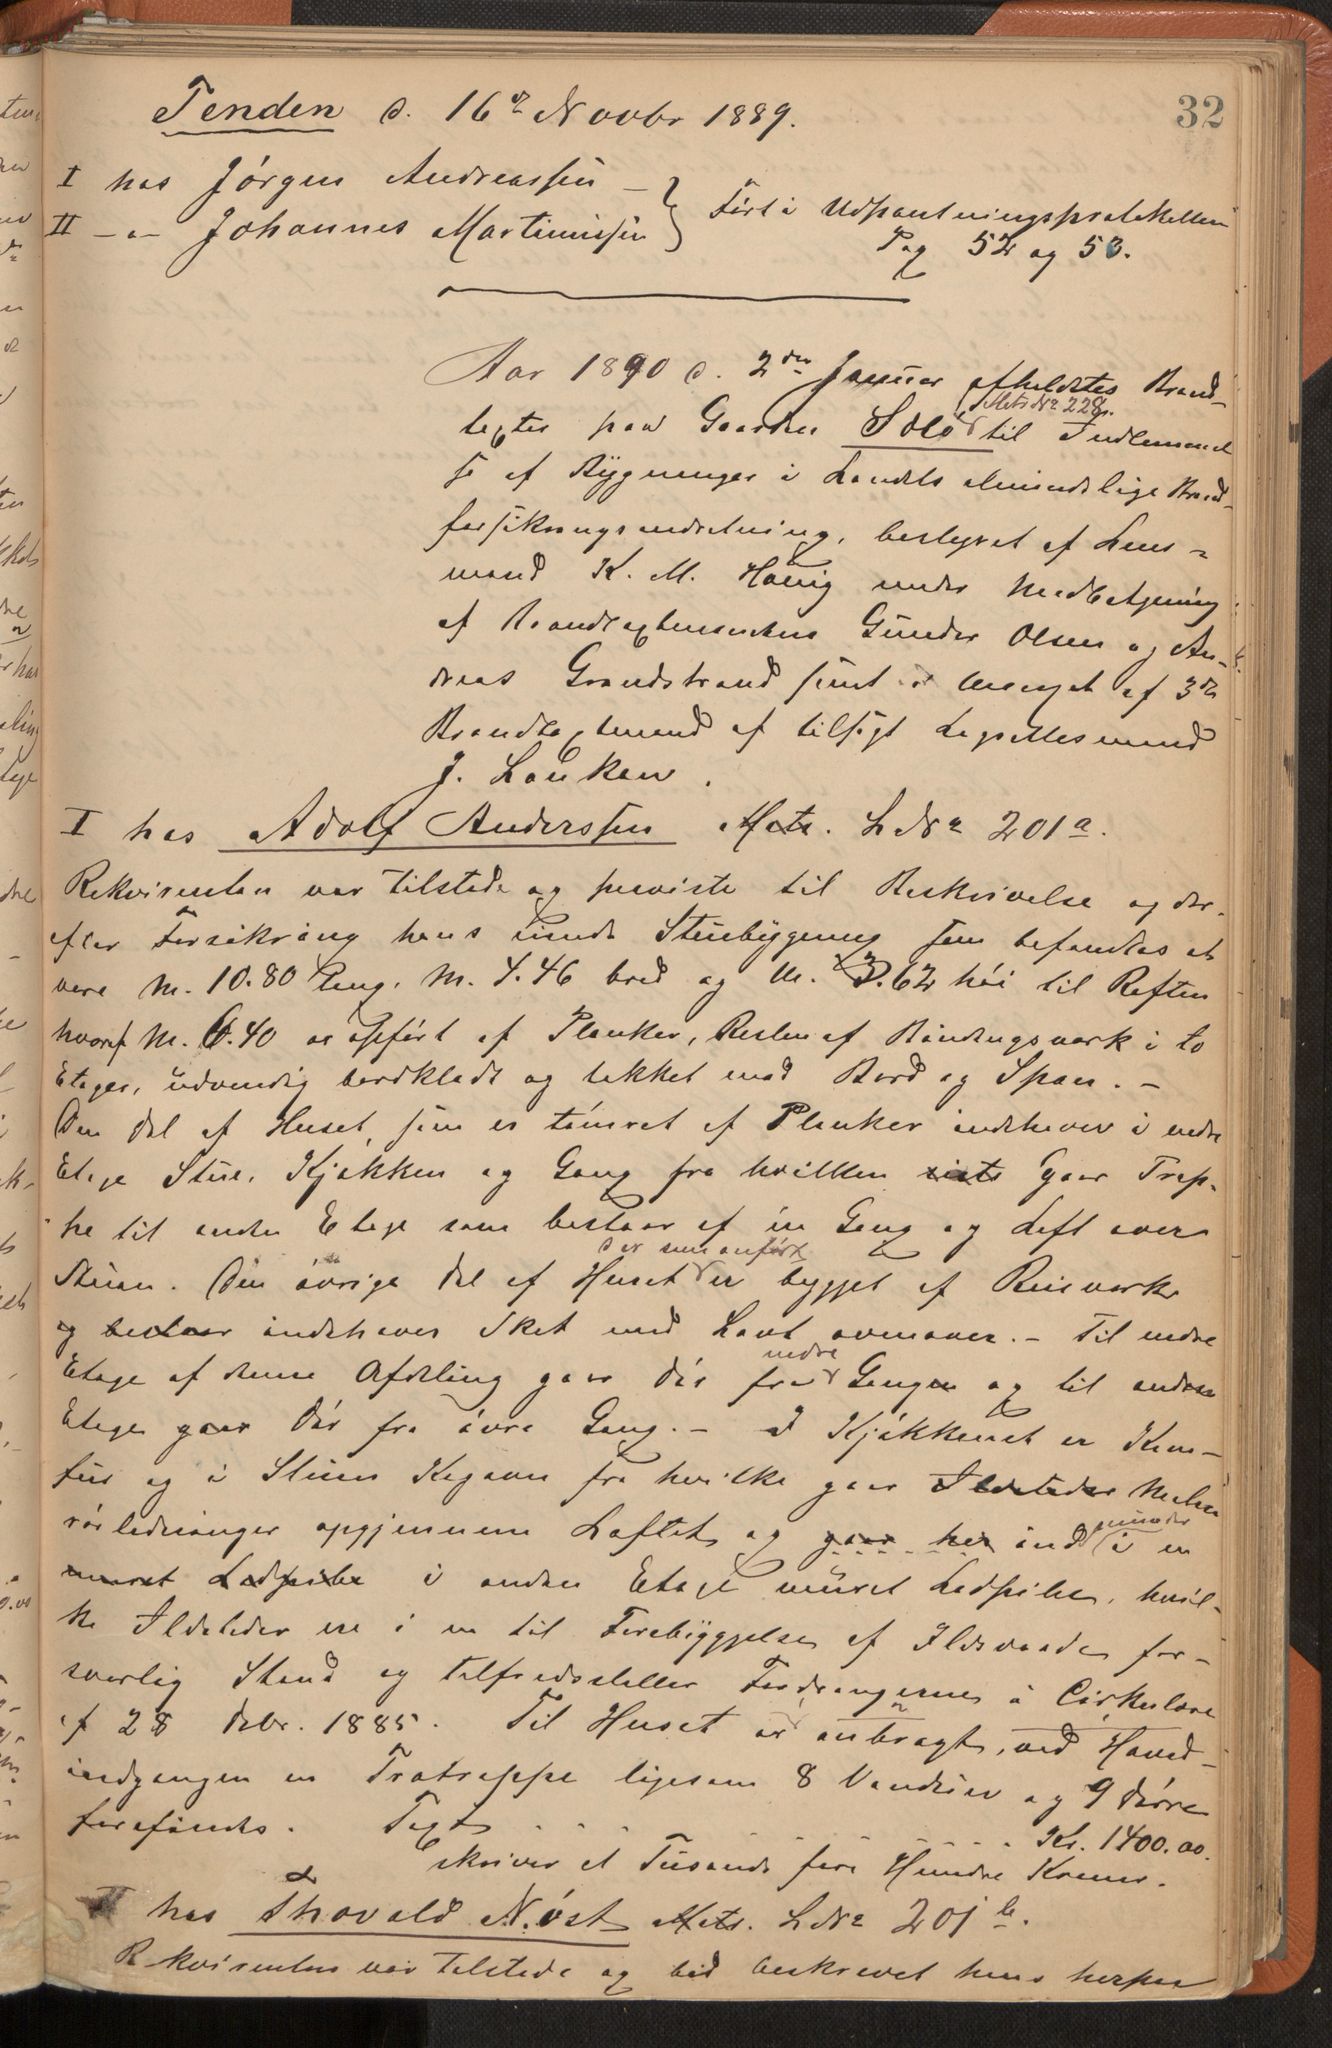 32
Tenden d. 16de Novbr 1889.
I hos Jörgen Andreassen
II -"- Johannes Martinussen
Ført i Udpantningsprotokollen
Pag 52 og 53.
Aar 1890 d. 2den Januar afholdtes Brand-
taxter paa Gaarden Solö Mats No 228. til Indlemmel
se af Bygninger i Landets almindelige Brand-
forsikringsindretning, bestyret af Lens-
mand K. M. Hönig under Medbetjening
af Brandtaxtmændene Gunder Olsen og An-
dreas Grandstrand samt i Mangel af 3die
Brandtaxtmand af tilsagt Lagrettesmand
J. Lauken.
I hos Adolf Anderssen Matr. L No 201a.
Rekvirenten var tilstede og paaviste til Beskrivelse og der-
efter Forsikring hans Stuebygning som befandtes at
være M. 10.80 lang, M. 4.46 bred og M. 3.62 høi til Raften
hvoraf M. 6.40 er opført af Planker, Resten af Bindingsværk i to
Etager, udvendig bordklædt og tækket med Bord og Spaan. -
Den Del af Huset, som er tømret af Planker indehaver i nedre
Etage Stue, Kjøkken og Gang fra hvilken sidste gaar Trap-
pe til anden Etage som bestaar af en Gang og Loft over
Stuen. Den øvrige Del af Huset der som anført er bygget af Reisverk
og bestaar indehaver Sket med Lavt ovenover. - Til nedre
Etage af denne Afdeling gaar Dør fra nedre Gangen og til anden
Etage gaar Dør fra øvre Gang. - I Kjøkkenet er Kom-
fur og i Stuen Kogeovn fra hvilke gaar Ildsteder Metal
rørledninger opgjennem Loftet og gaar her ind i en
muret Ledpibe i anden Etage muret Ledpibe, hvil-
ke Ildsteder ere i en til Forebyggelse af Ildsvaade for-
svarlig Stand og tilfredsstiller Fordringerne i Cirkulære
af 28 Debr. 1885. Til Huset er anbragt, ved Hoved-
indgangen en Trætrappe ligesom 8 Vinduer og 9 Dørre
forefindes. Taxt . . . . . . . . . Kr. 1400.00.
skriver et Tusende fire Hundre Kroner.
II hos Thovald Nöst Matr. L No 201 b.
Rekvirenten var tilstede og bad beskrevet hans herpaa